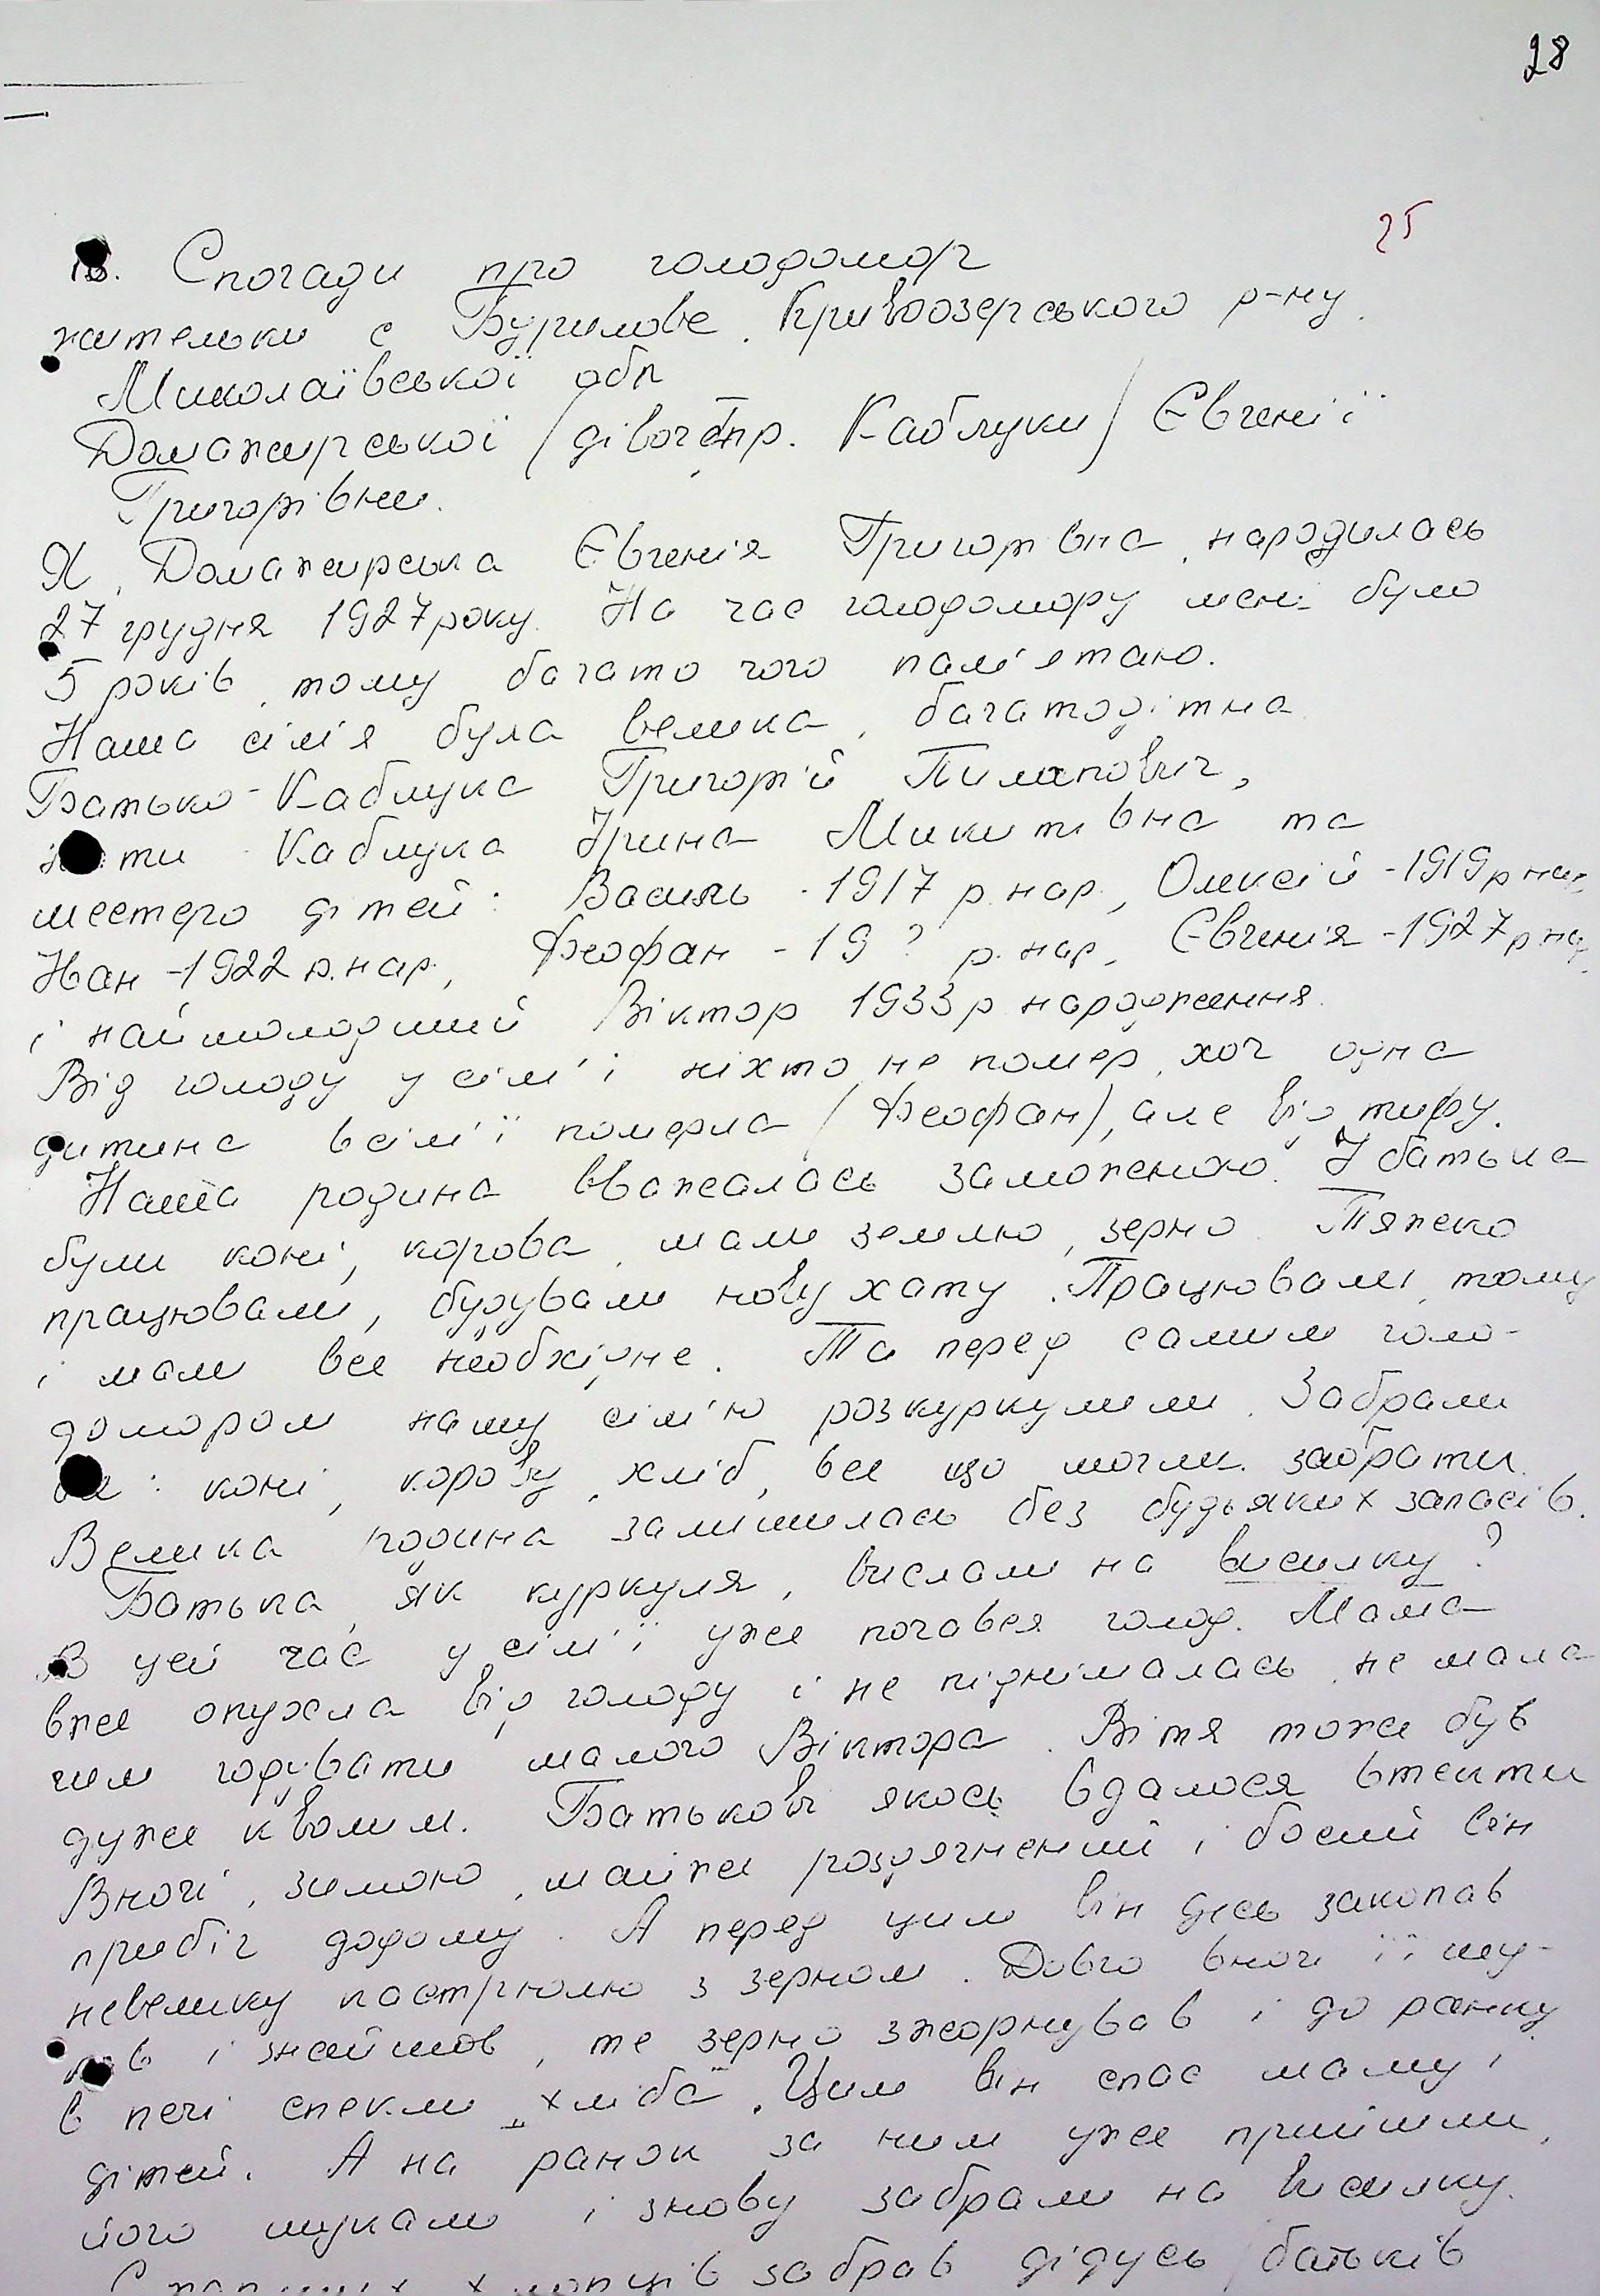 28
25
18. Спогади про голодомор
жительки с Бурилове, Кривоозерського р-ну.
Миколаївської обл
Доможирської /дівоче пр. Каблуки/ Євгенії
Григорівни.
Я, Доможирська Євгенія Григорівна, народилась
27 грудня 1927 року. На час голодомору мені було
5 років, тому багато чого пам'ятаю.
Наша сім'я була велика, багатодітна.
Батько - Каблука Григорій Пилипович,
мати Каблука Ірина Микитівна та
шестеро дітей: Василь - 1917 р.нар., Олексій - 1919 р нар,
Іван - 1922 р.нар., Феофан - 19 ? р. нар, Євгенія - 1927 р нар,
і наймолодший Віктор 1933 р народження.
Від голоду у сім'ї ніхто не помер, хоч одна
дитина в сім'ї померла /Феофан/, але від тифу.
Наша родина вважалась заможною. У батька
були коні, корова, мали землю, зерно. Тяжко
працювали, будували нову хату. Працювали, тому
і мали все необхідне. Та перед самим голо-
домором нашу сім'ю розкуркулили. Забрали
все: коні, корову, хліб, все що могли забрати.
Велика родина залишилась без будьяких запасів.
Батька, як куркуля, вислали на висилку ?
В цей час у сім'ї уже почався голод. Мама
вже опухла від голоду і не піднімалась, не мала
чим годувати малого Віктора. Вітя тоже був
дуже кволим. Батькові якось вдалося втекти
Вночі, зимою, майже роздягнений і босий він
прибіг додому. А перед цим він десь закопав
невелику каструлю з зерном. Довго вночі її шу-
кав і знайшов, те зерно зжорнував і до ранку
в печі спекли „хліба". Цим він спас маму і
дітей. А на ранок за ним уже прийшли,
його шукали і знову забрали на висилку.
Старших хлопців забрав дідусь батьків